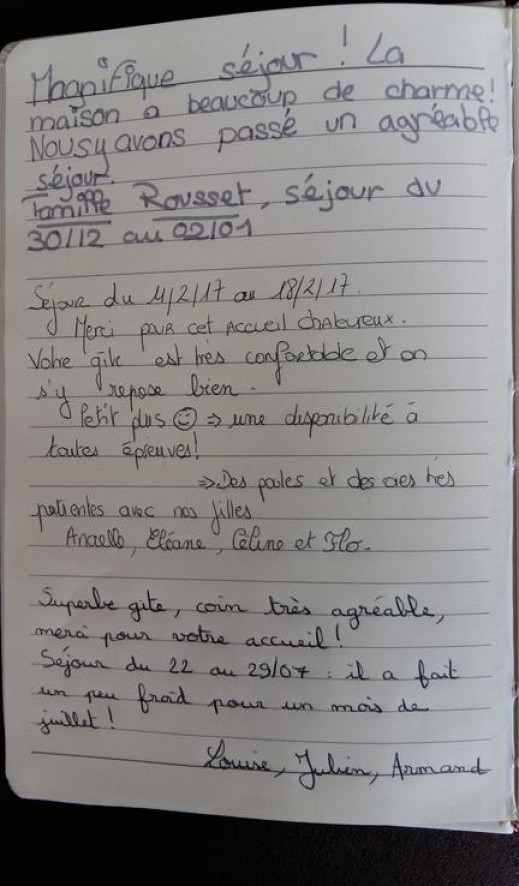 Magnifique séjour ! La
maison a beaucoup de charme!
Nous y avons passé un agréable
séjour.
Famille Rousset, séjour du
30/12 au 02/01
Séjour du 11/2/17 au 18/2/17.
Merci pour cet accueil chaleureux.
Votre gîte est très confortable et on
s'y repose bien.
Petit plus ☺ ⇒ une disponibilité à
toutes épreuves!
⇒ Des poules et des oies très
patientes avec nos filles
Anaelle, Eléane, Céline et Flo.
Superbe gite, coin très agréable,
merci pour votre accueil !
Séjour du 22 au 29/07 : il a fait
un peu froid pour un mois de
juillet !
Louise, Julien, Armand